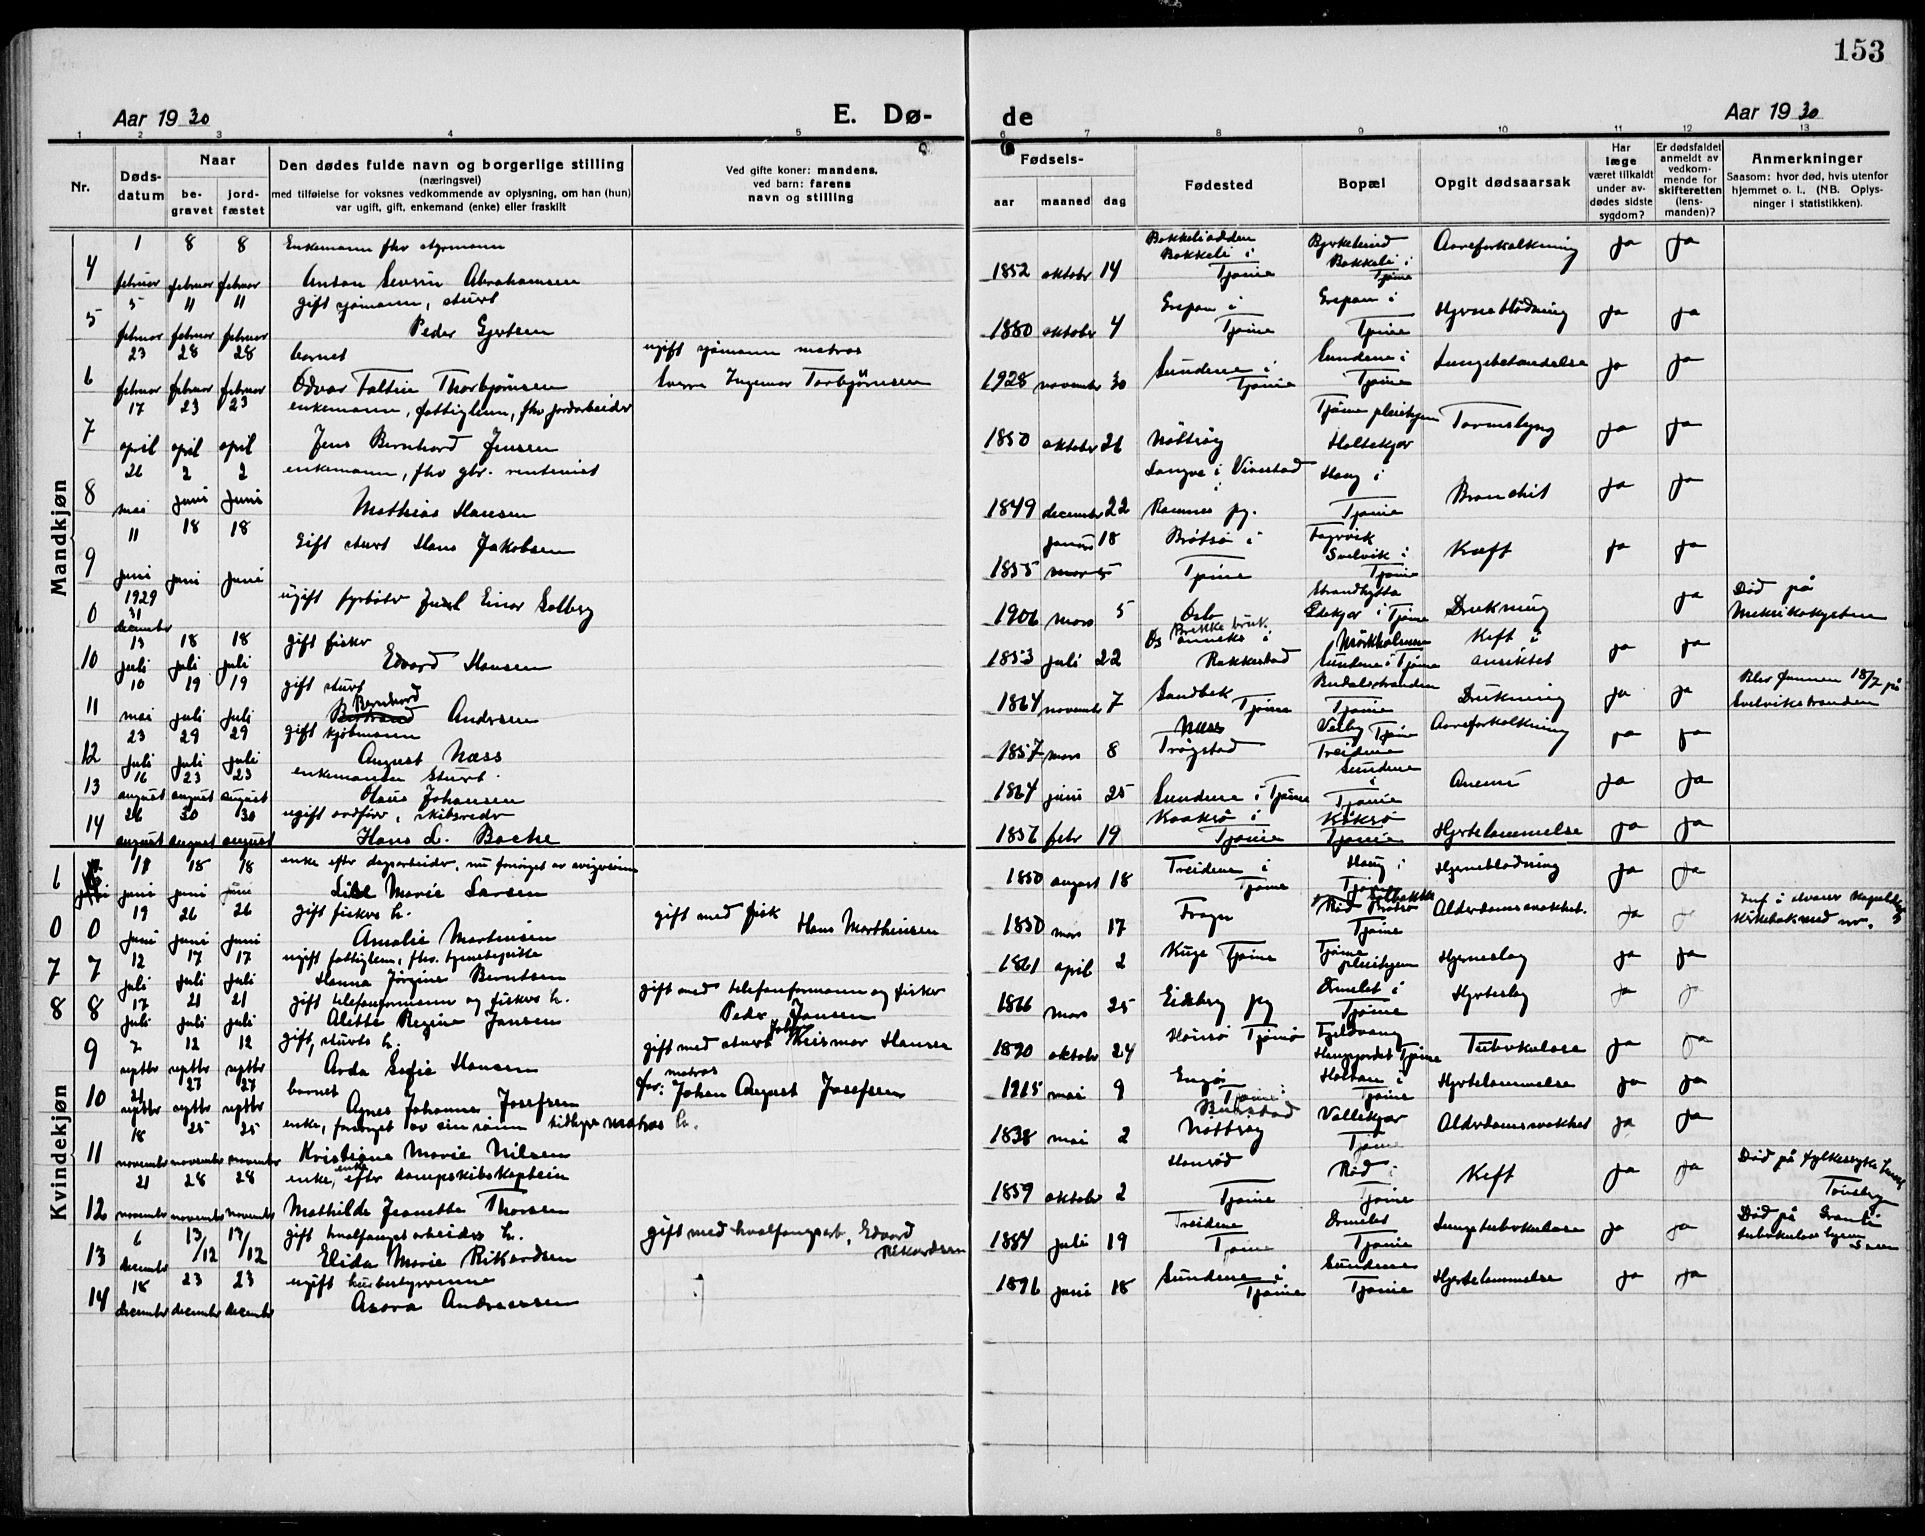 153
Aar 1930 E. Dø- de Aar 1930
1 2 3 4 5 6 7 8 9 10 11 12 13
Nr. Døds-datum Naar be-gravet jord-fæstet
Den dødes fulde navn og borgerlige stilling
(næringsvei)
med tilføielse for voksnes vedkommende av oplysning, om han (hun)
var ugift, gift, enkemand (enke) eller fraskilt
Ved gifte koner: mandens,
ved barn: farens
navn og stilling
Fødsels- aar maaned dag
Fødested Bopæl Opgit dødsaarsak
Har læge været tilkaldt under av-dødes sidste sygdom?
Er dødsfaldet anmeldt av vedkom-mende for skifteretten (lens-manden)?
Anmerkninger
Saasom: hvor død, hvis utenfor hjemmet o. l., (NB. Oplys-ninger i statistikken).
Mandkjøn
1 8 8 Enkemann fhv styrmann Bakkeli i
4 februar februar februar Anton Severin Abrahamsen 1852 oktober 14 Tjøme Bakkeli i Tjøme Aareforkalkning ja ja
5 11 11 gift sjømann, stuert
5 februar februar februar Peder Gjertsen 1880 oktober 4 Grepan i Tjøme Grepan i Tjøme Hjerneblødning ja ja
23 28 28 barnet ugift sjømann matros
6 februar februar februar Odvar Faltin Thorbjørnsen Sverre Ingemar Torbjørnsen 1928 november 30 Sundene i Tjøme Sundene i Tjøme Lungebetændelse ja ja
17 23 23 enkemann, fattiglem, fhv jordarbeider
7 april april april Jens Bernhard Jensen 1850 oktober 26 Nøtterøy Tjøme pleiehjem Holtekjær Tarmslyng ja ja
26 2 2 enkemann, fhv gbr. rentenist
8 mai juni juni Mathias Hansen 1849 december 22 Ramnes pg. Haug i Tjøme Bronchit ja ja
11 18 18 Gift stuert Hans Jakobsen
9 juni juni juni 1855 januar 18 Brøtsø i Tjøme Fagervik Svelvik i Tjøme Kræft ja ja
1929
0 31 december ugift fyrbøter Einar Solberg 1906 mars 5 Oslo Strandhytta i Tjøme Drukning ja Død på Meksikokysten
13 18 18 gift fisker
10 juli juli juli Edvard Hansen 1853 juli 22 Rakkestad Mørkholmen Sundene i Tjøme Kreft i ansiktet ja ja
10 19 19 gift stuert
11 mai juli juli Bernhard Andersen 1864 november 7 Sandbek Tjøme Tjøme Drukning ja ja Blev funnen 18/7 på Svelvikstranden
23 29 29 gift kjøbmann
12 juli juli juli August Næss 1857 mars 8 Næss Trøgstad Tjøme Treidene Aareforkalkning ja ja
16 23 23 enkemann stuert
13 august august august Olaus Johansen 1864 juni 25 Sundene i Tjøme Sundene i Tjøme Anemi ja ja
26 30 30 ugift ordfører, skibsreder
14 august august august Hans L. Bache 1856 febr 19 Tjøme Tjøme Hjertelammelse ja ja
Kvindekjøn
6 11 18 18 enke efter dagsarbeider, nu forsørget av
juni juni juni Marie Larsen 1850 august 18 Treidene i Tjøme Haug i Tjøme Hjerneblødning ja ja
19 26 26 gift fiskers h. gift med fisk
0 0 juni juni juni Amalie Martinsen Hans Marthinsen 1850 mars 17 Frogn Rød Brøtsø Tjøme Alderdomssvakhet. ja
12 17 17 ugift fattiglem, fhv. tjenestepike
7 7 juli juli juli Hanna Jørgine Berntsen 1861 april 2 Tjøme Tjøme pleiehjem Hjerneslag ja ja
17 21 21 gift telefonformann og fiskers h. gift med telefonformann og fisker
8 8 juli juli juli Alette Regine Jansen Peder Jansen 1866 mars 25 Eidsberg pg Ormelet i Tjøme Hjerteslag ja ja
7 12 12 gift, stuerts h. gift med stuert Hansen
9 septbr septbr septbr Arda Sofie Hansen 1890 oktober 24 Tjøme Tjøme Tuberkulose ja ja
21 27 27 barnet matros
10 septbr septbr septbr Agnes Johanne Josefsen far: Johan August Josefsen 1915 mai 9 Engø Tjøme Holtan i Tjøme Hjertelammelse ja ja
18 25 25 enke, forsørget av sin sønn tidligere matros h.
11 november november november Kristiane Marie Nilsen 1838 mai 2 Nøtterøy Vallekjær Tjøme Alderdomssvakhet ja ja
21 28 28 enke, efter dampskibskaptein
12 november november november Mathilde Jeanette Thorsen 1859 oktober 2 Hønsrød Tjøme Rød i Tjøme Kreft ja ja Død på fylkessykehuset Tønsberg
6 13 13 gift hvalfangstarbeiders h. gift med hvalfangsarb. Edvard Rikardsen
13 december /12 /12 Elida Marie Rikardsen 1884 juli 19 Treidene Tjøme Ormelet Tjøme Lungetuberkulose ja ja Død på Granli tuberkulosehjem
18 23 23 ugift husbestyrerinne
14 december december december Asora Andreassen 1896 juni 18 Sundene i Tjøme Sundene Tjøme Hjertelammelse ja ja